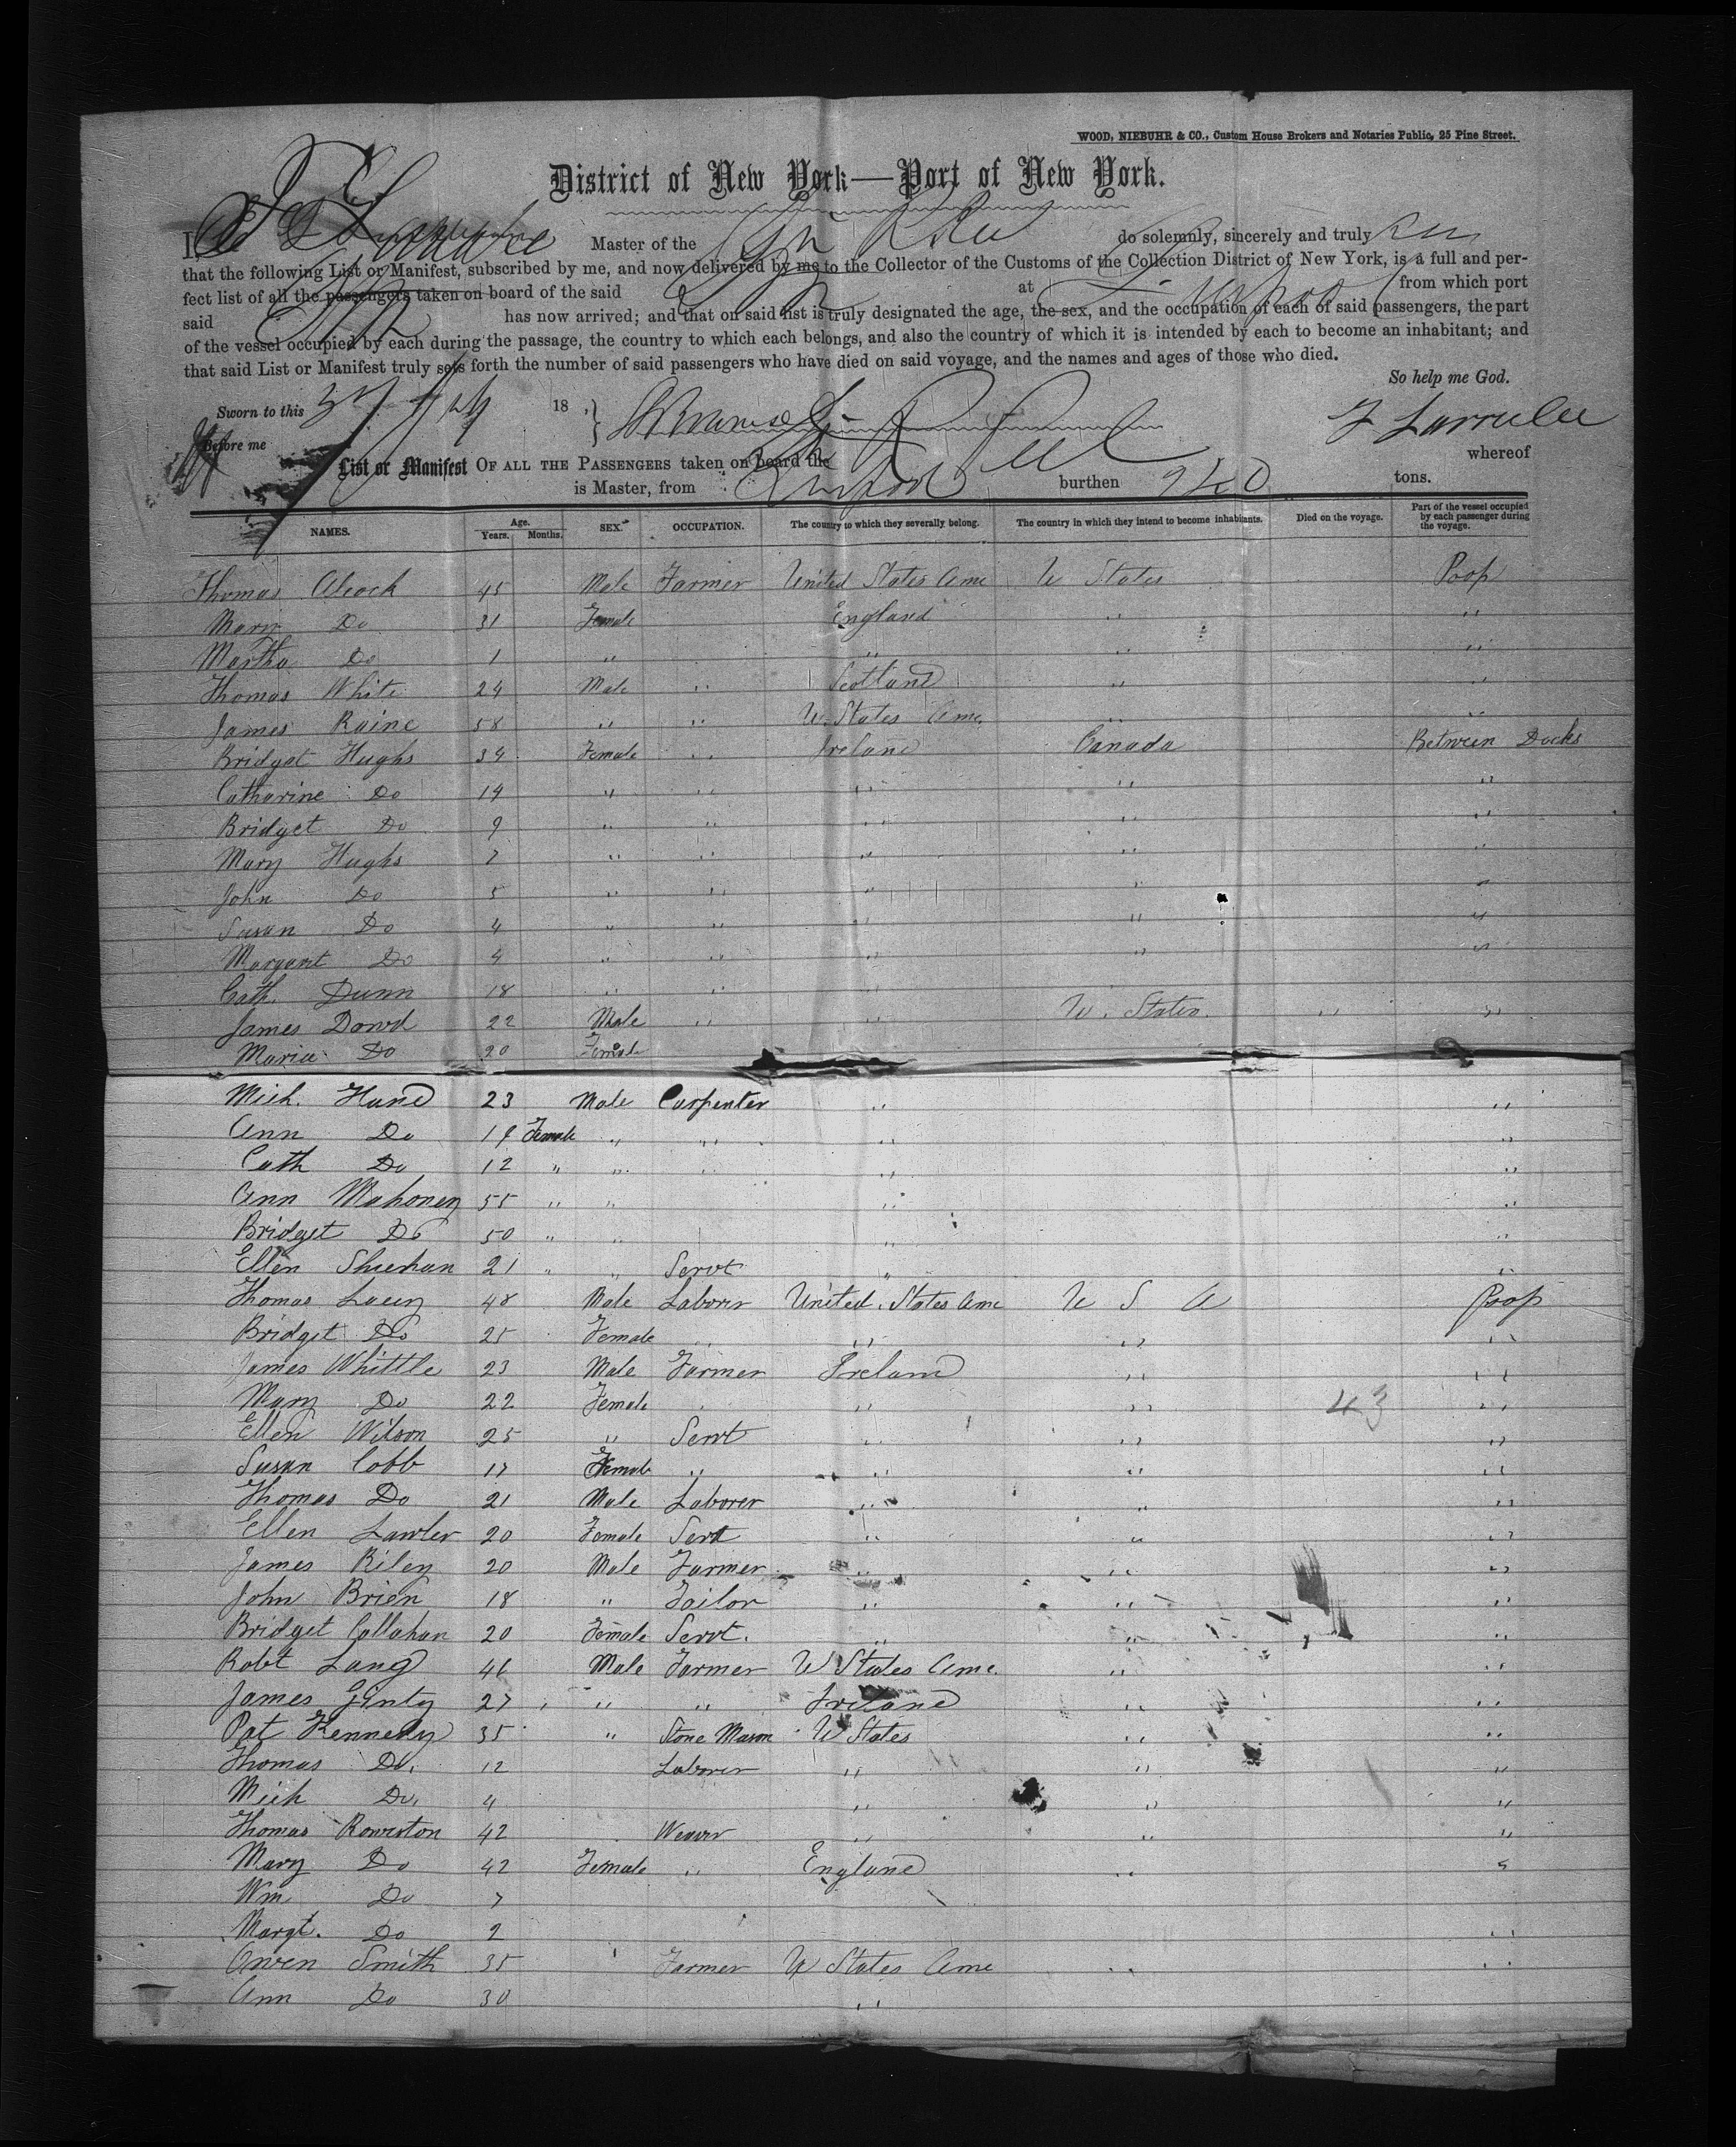 WOOD, NIEBUHR & CO., Custom House Brokers and Notaries Public, 25 Pine Street.
District of New York—Port of New York.
I, Master of the do solemnly, sincerely and truly
that the following List or Manifest, subscribed by me, and now delivered by me to the Collector of the Customs of the Collection District of New York, is a full and per-
fect list of all the passengers taken on board of the said at from which port
said has now arrived; and that on said list is truly designated the age, the sex, and the occupation of each of said passengers, the part
of the vessel occupied by each during the passage, the country to which each belongs, and also the country of which it is intended by each to become an inhabitant; and
that said List or Manifest truly sets forth the number of said passengers who have died on said voyage, and the names and ages of those who died.
So help me God.
Sworn to this 18 ,
Before me
whereof
List or Manifest OF ALL THE PASSENGERS taken on board the
is Master, from burthen tons.
NAMES. Age. Years. Months. SEX. OCCUPATION. The country to which they severally belong. The country in which they intend to become inhabitants. Died on the voyage. Part of the vessel occupied by each passenger during the voyage.
Thomas Alcock 45 Male Farmer United States Ame U States Poop
Mary Do 31 Female England " "
Martha Do 1 " " " "
Thomas White 24 Male " Scotland " "
James Raine 58 " " U. States Ame, " "
Bridget Hughs 34 Female " Ireland Canada Between Decks
Catharine Do 14 " " " " "
Bridget Do 9 " " " " "
Mary Hughs 7 " " " " "
John Do 5 " " " " "
Susan Do 4 " " " " "
Margaret Do 4 " " " " "
Cath. Dunn 18 " " "
James Dowd 22 Male " " U. States. " "
Maria Do 20 Female
Mich. Hand 23 Male Carpenter " "
Ann Do 19 Female " " " "
Cath Do 12 " " " " "
Ann Mahoney 55 " " " "
Bridget Do 50 " " " "
Ellen Sheehan 21 " " Servt " "
Thomas Lacey 48 Male Laborer United States Ame U S A Poop
Bridget Do 25 Female " " " "
James Whittle 23 Male Farmer Ireland " "
Mary Do 22 Female " " 43 "
Ellen Wilson 25 " Servt " " "
Susan Cobb 17 Female " " " "
Thomas Do 21 Male Laborer " " "
Ellen Lawler 20 Female Servt " " "
James Riley 20 Male Farmer " " "
John Brien 18 " Tailor " " "
Bridget Callahan 20 Female Servt. " " "
Robt Lang 46 Male Farmer U States Ame. " "
James Ginty 27 " " Ireland " "
Pat Kennedy 35 " Stone Mason U States " "
Thomas Do. 12 Laborer " " "
Mich Do. 4 " " "
Thomas Rowrston 42 Weaver " " "
Mary Do 42 Female " England " "
Wm Do 7
Margt. Do 2 "
Owen Smith 35 Farmer U States Ame " "
Ann Do 30 "